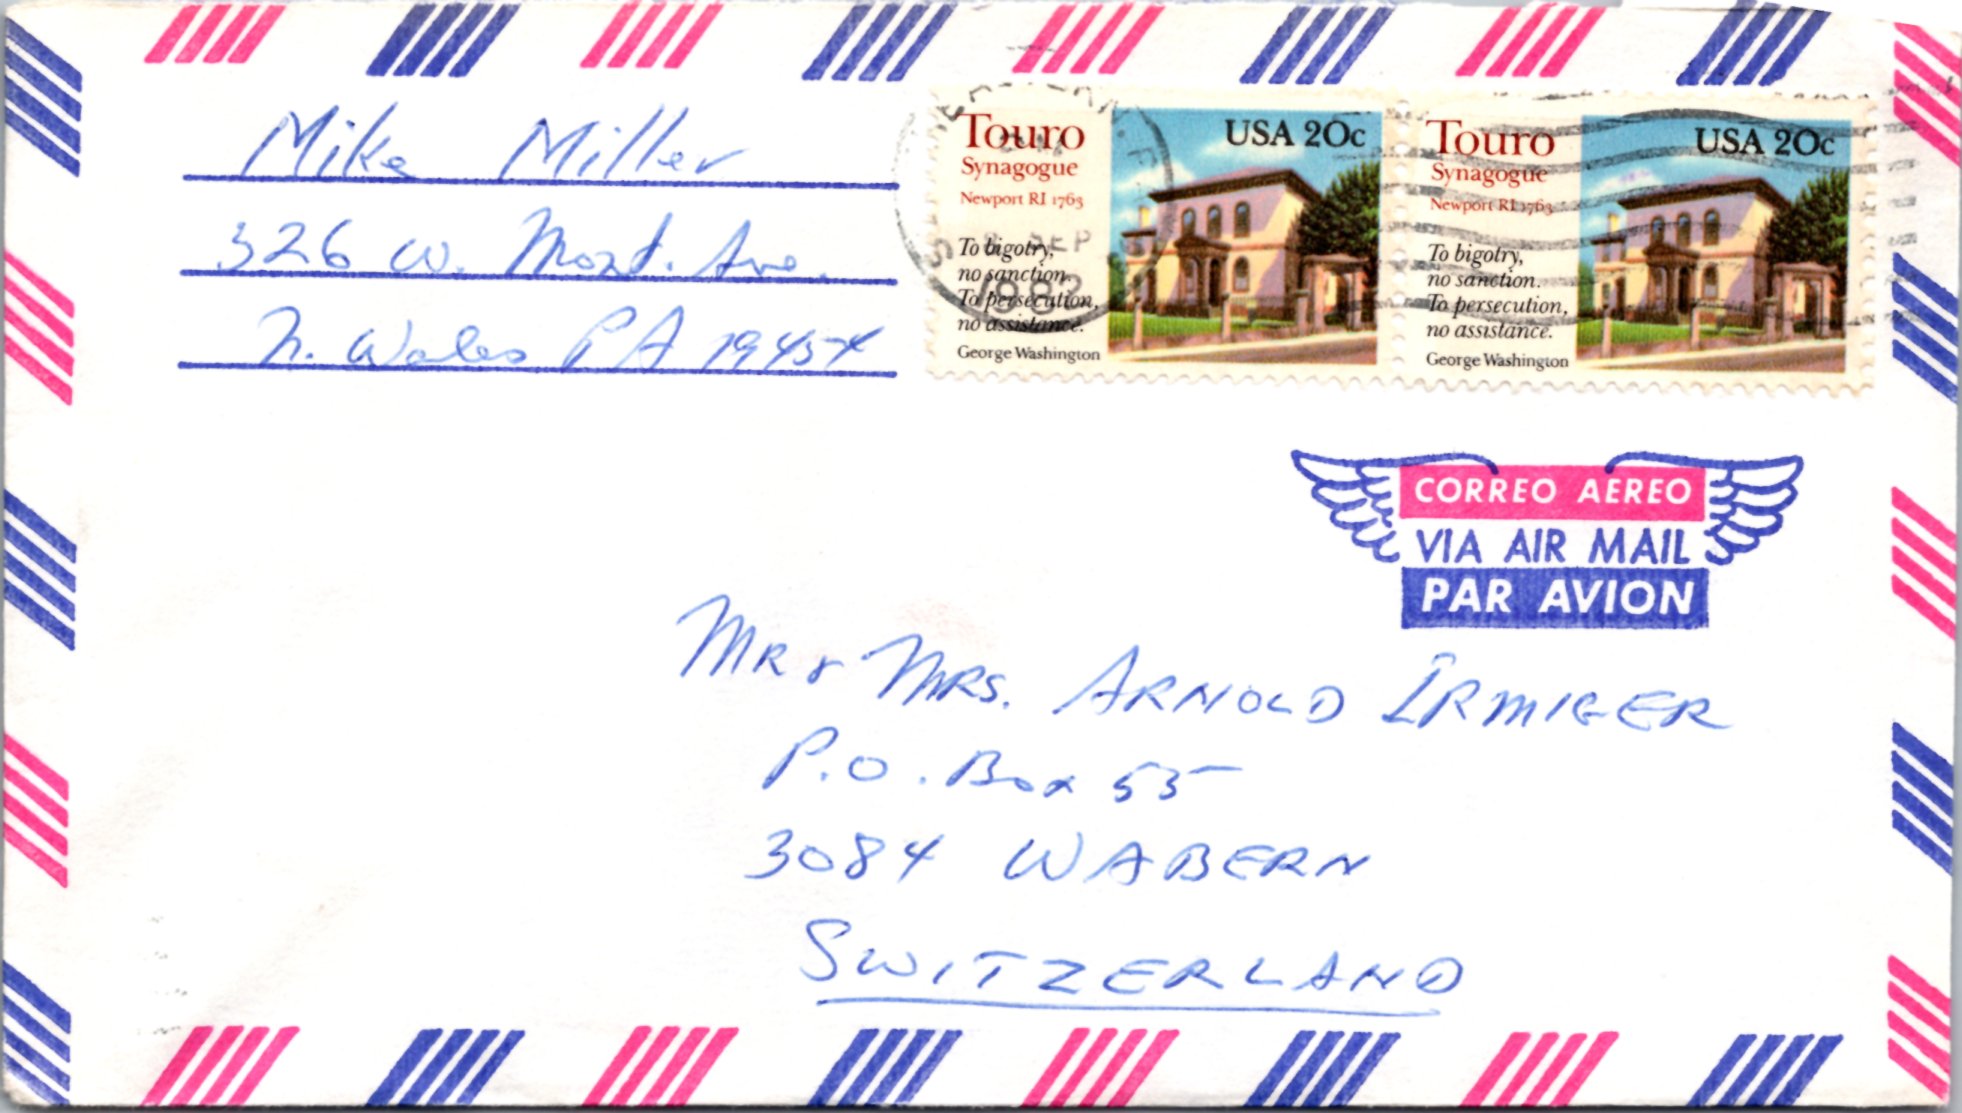 Mike Miller
326 W. Mont. Ave.
N. Wales PA 19454
Touro
Synagogue
Newport RI 1763
To bigotry,
no sanction.
To persecution,
no assistance.
George Washington
USA 20c
Touro
Synagogue
Newport RI 1763
To bigotry,
no sanction.
To persecution,
no assistance.
George Washington
USA 20c
SEP
1982
CORREO AEREO
VIA AIR MAIL
PAR AVION
MR & MRS. ARNOLD IRMIGER
P.O. Box 55
3084 WABERN
SWITZERLAND